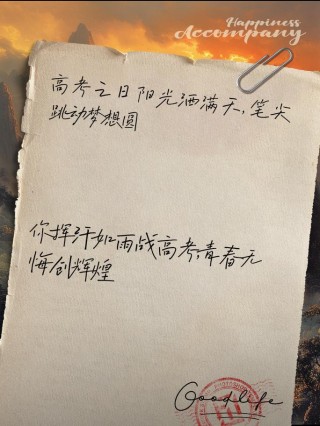 Happiness
Accompany
高考之日阳光洒满天,笔尖
跳动梦想圆
你挥汗如雨战高考,青春无
悔创辉煌
Good life